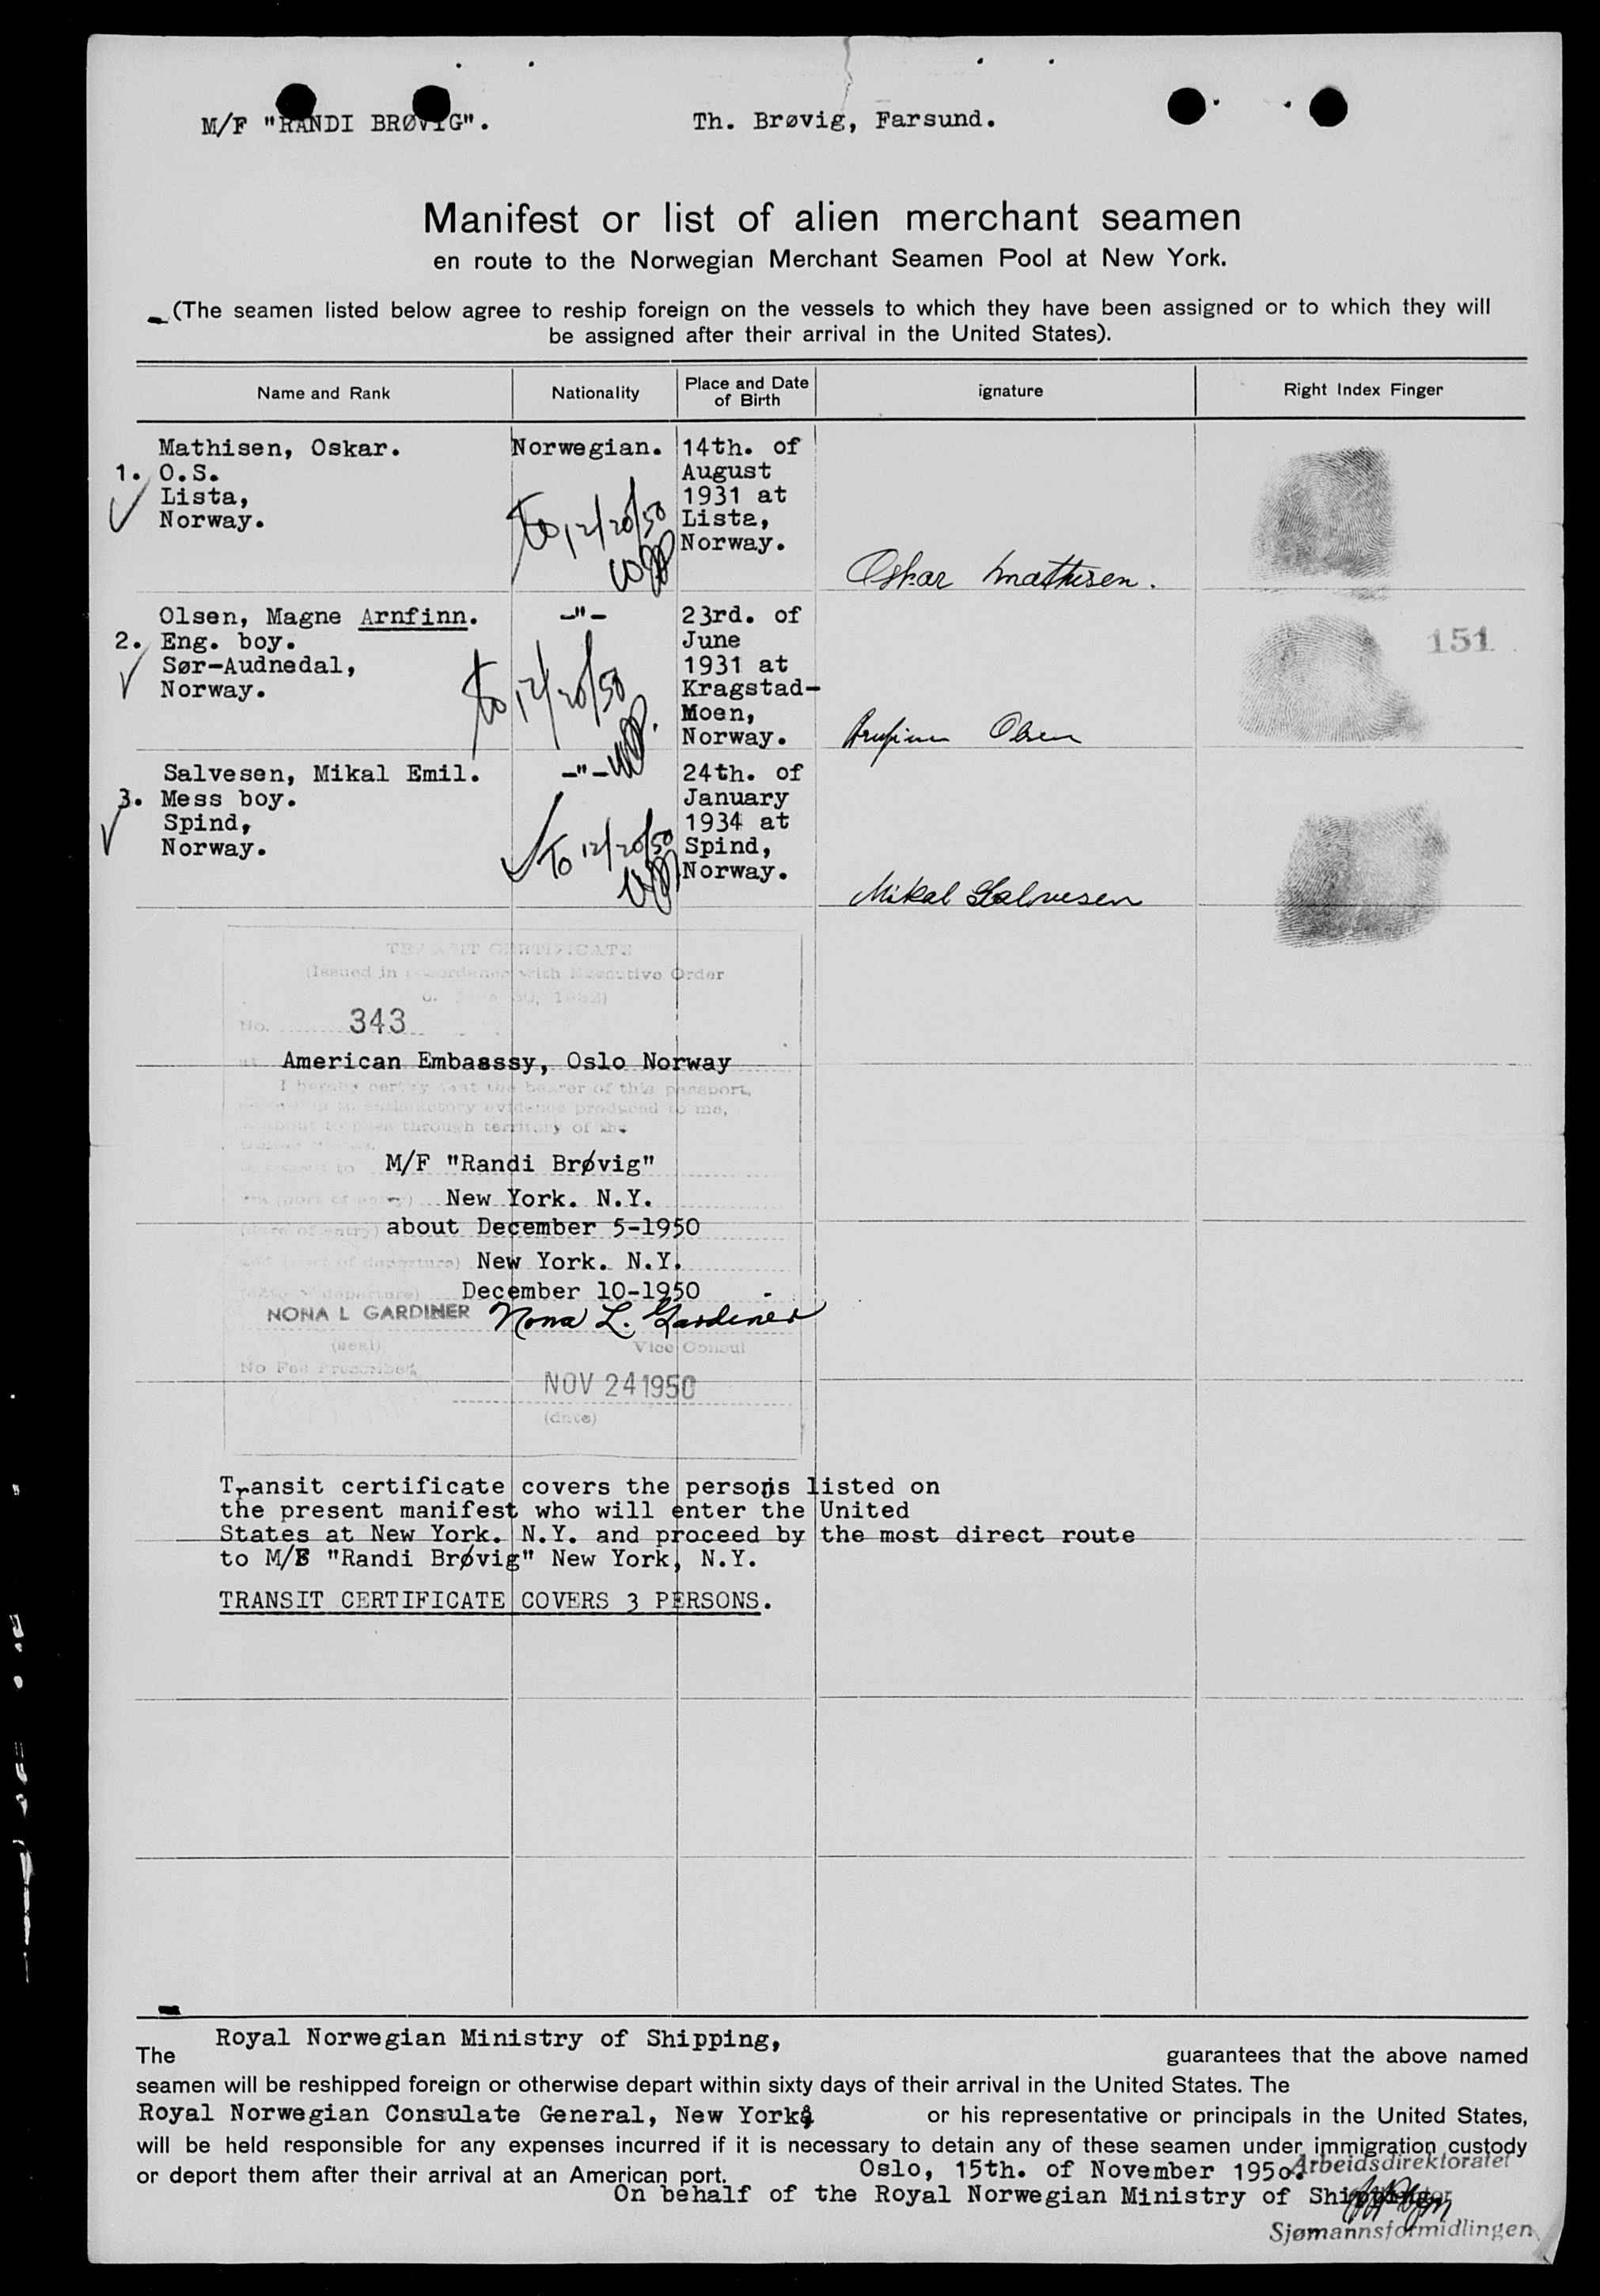 M/F "RANDI BRØVIG".
Th. Brøvig, Farsund.
Manifest or list of alien merchant seamen
en route to the Norwegian Merchant Seamen Pool at New York.
(The seamen listed below agree to reship foreign on the vessels to which they have been assigned or to which they will
be assigned after their arrival in the United States).
Name and Rank
Nationality
Place and Date
of Birth
ignature
Right Index Finger
Mathisen, Oskar.
1. O.S.
Lista,
Norway.
Norwegian.
to 12/20/50
14th. of
August
1931 at
Lista,
Norway.
Oskar Mathisen.
Olsen, Magne Arnfinn.
2. Eng. boy.
Sør-Audnedal,
Norway.
-"-
to 12/20/50
23rd. of
June
1931 at
Kragstad-
Moen,
Norway.
Arnfinn Olsen
151
Salvesen, Mikal Emil.
3. Mess boy.
Spind,
Norway.
-"-
To 12/20/50
24th. of
January
1934 at
Spind,
Norway.
Mikal Salvesen
TRANSIT CERTIFICATE
(Issued in accordance with Executive Order
No. 343
at American Embasssy, Oslo Norway
I hereby certify that the bearer of this passport,
according to satisfactory evidence produced to me,
is about to pass through territory of the
M/F "Randi Brøvig"
(port of entry) New York. N.Y.
(date of entry) about December 5-1950
(port of departure) New York. N.Y.
(date of departure) December 10-1950
NONA L GARDINER Nona L. Gardiner
(seal) Vice Consul
No Fee Prescribed
NOV 24 1950
(date)
Transit certificate covers the persons listed on
the present manifest who will enter the United
States at New York. N.Y. and proceed by the most direct route
to M/S "Randi Brøvig" New York, N.Y.
TRANSIT CERTIFICATE COVERS 3 PERSONS.
The Royal Norwegian Ministry of Shipping, guarantees that the above named
seamen will be reshipped foreign or otherwise depart within sixty days of their arrival in the United States. The
Royal Norwegian Consulate General, New York, or his representative or principals in the United States,
will be held responsible for any expenses incurred if it is necessary to detain any of these seamen under immigration custody
or deport them after their arrival at an American port.
Oslo, 15th. of November 1950.
Arbeidsdirektoratet
On behalf of the Royal Norwegian Ministry of Shipping
Sjømannsformidlingen